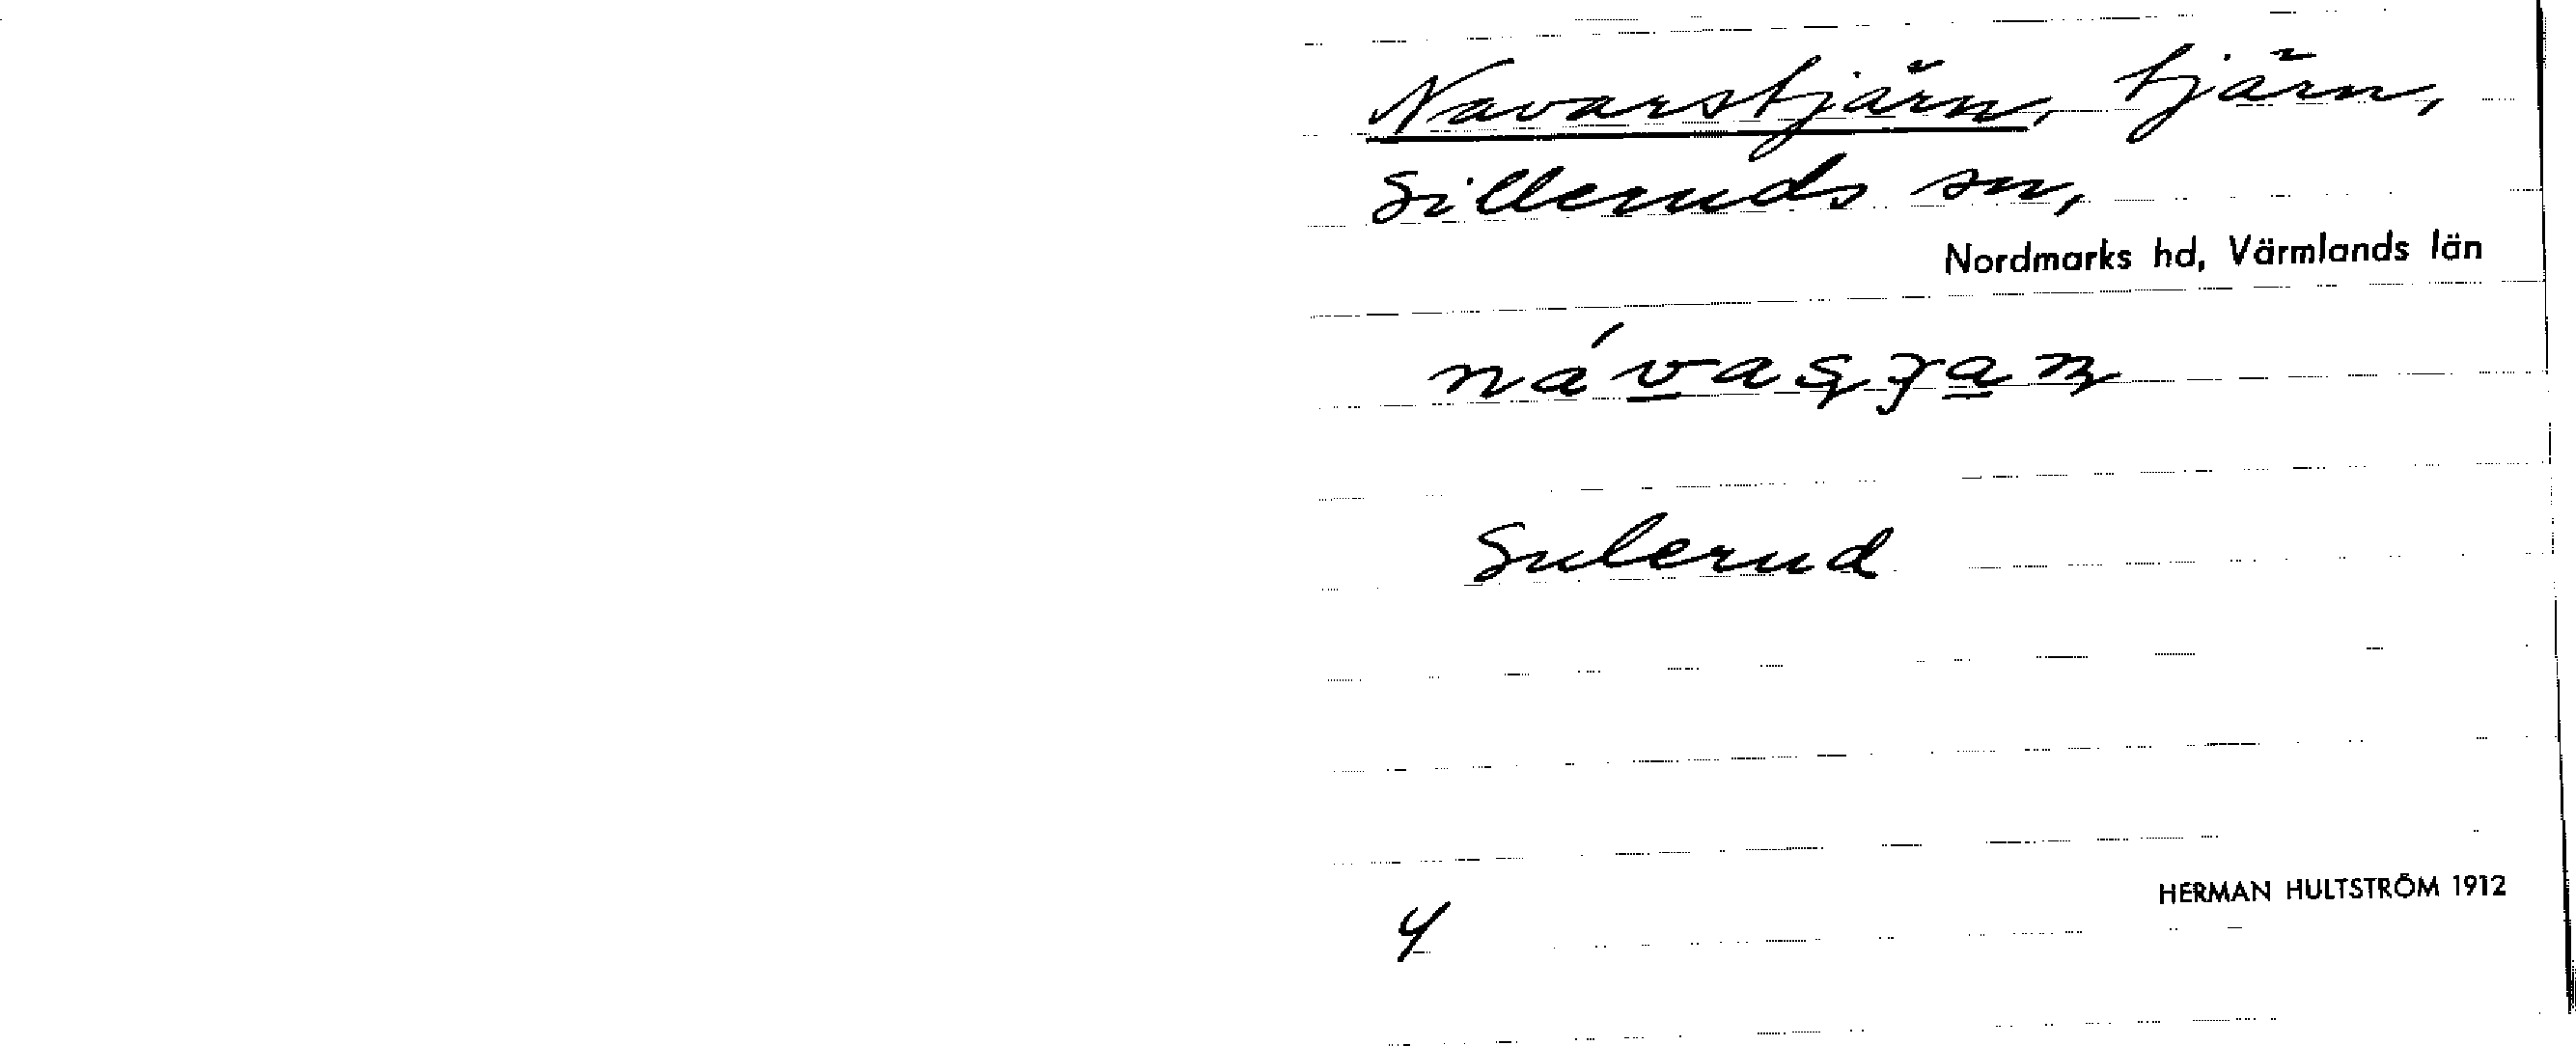 Navarstjärn, tjärn,
Silleruds sn,
Nordmarks hd, Värmlands län
Sulerud
HERMAN HULTSTRÖM 1912
4